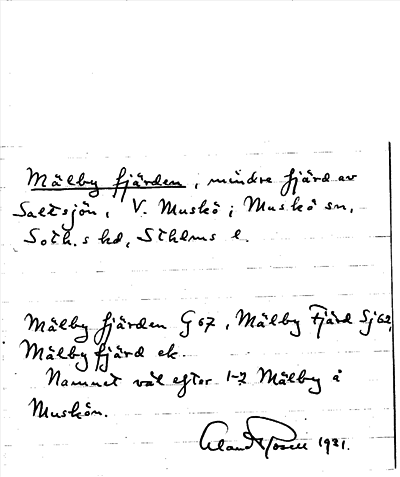 Mälby fjärden, mindre fjärd av
Saltsjön, V. Muskö i Muskö sn,
Soth.s hd, Sthlms l.
Mälby fjärden G 67, Mälby Fjärd Sj 62,
Mälby fjärd ek.
Namnet väl efter 1-2 Mälby å
Muskön.
1931.